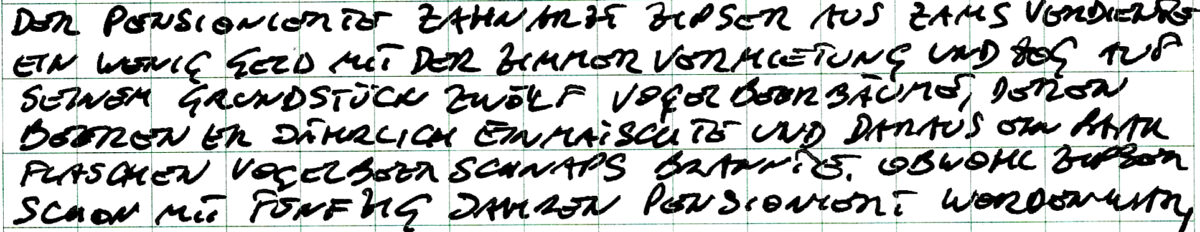 DER PENSIONIERTE ZAHNARZT ZIPSER AUS ZAMS VERDIENTE
EIN WENIG GELD MIT DER ZIMMERVERMIETUNG UND ZOG AUF
SEINEM GRUNDSTÜCK ZWÖLF VOGELBEERBÄUME, DEREN
BEEREN ER JÄHRLICH EINMAISCHTE UND DARAUS EIN PAAR
FLASCHEN VOGELBEERSCHNAPS BRANNTE. OBWOHL ZIPSER
SCHON MIT FÜNFZIG JAHREN PENSIONIERT WORDEN WAR,